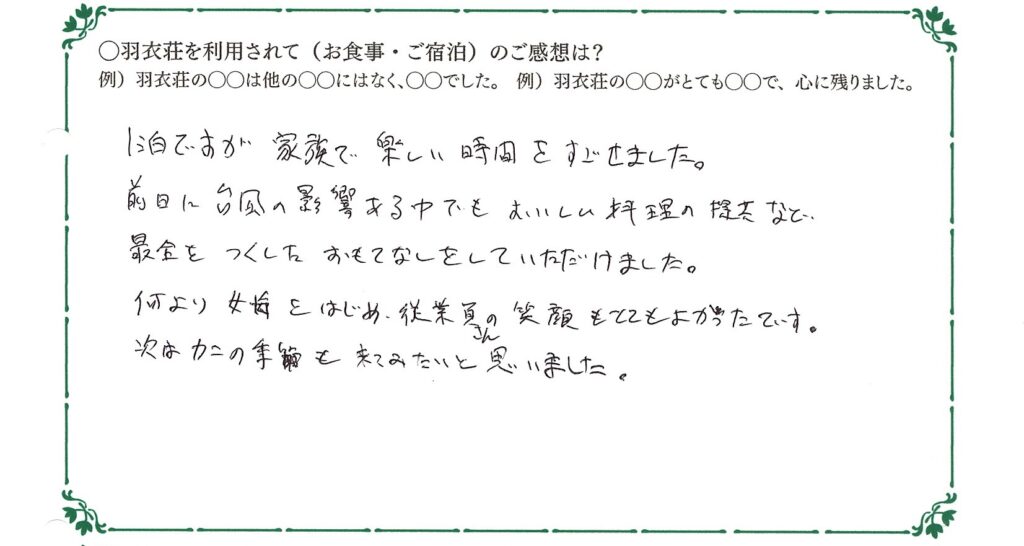 〇羽衣荘を利用されて（お食事・ご宿泊）のご感想は？
例）羽衣荘の〇〇は他の〇〇にはなく、〇〇でした。 例）羽衣荘の〇〇がとても〇〇で、心に残りました。
1泊ですが 家族で 楽しい 時間を すごせました。
前日に 台風の 影響ある中でも おいしい 料理の 提供など、
最全を つくした おもてなしをしていただけました。
何より 女将をはじめ、従業員さんの 笑顔もとてもよかったです。
次は カニの季節も 来てみたいと 思いました。